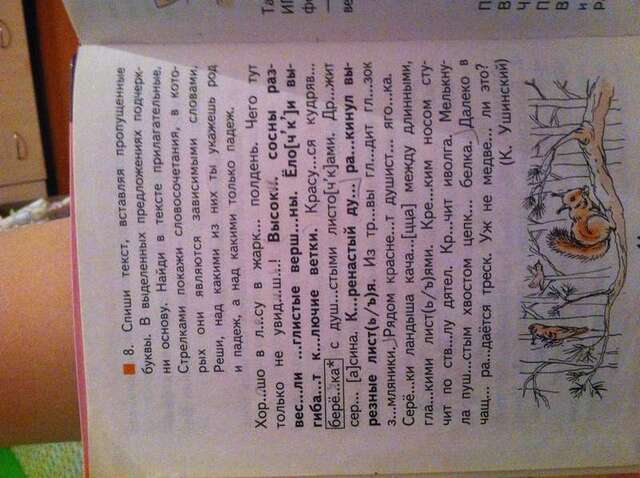 8. Спиши текст, вставляя пропущенные
буквы. В выделенных предложениях подчерк-
ни основу. Найди в тексте прилагательные.
Стрелками покажи словосочетания, в кото-
рых они являются зависимыми словами.
Реши, над какими из них ты укажешь род
и падеж, а над какими только падеж.
Хор...шо в л...су в жарк... полдень. Чего тут
только не увид...ш...! Высок... сосны раз-
вес...ли ...глистые верш...ны. Ёло[ч'к']и вы-
гиба...т к...лючие ветки. Красу...ся кудряв...
берё...ка* с душ...стыми листо[ч'к]ами. Др...жит
сер... [а]сина. К...ренастый ду... ра...кинул вы-
резные лист(ь/ъ)я. Из тр...вы гл...дит гл...зок
з...мляники. Рядом красне...т душист... яго...ка.
Серё...ки ландыша кача...[цца] между длинными,
гла...кими лист(ь/ъ)ями. Кре...ким носом сту-
чит по ств...лу дятел. Кр...чит иволга. Мелькну-
ла пуш...стым хвостом цепк... белка. Далеко в
чащ... ра...даётся треск. Уж не медве... ли это?
(К. Ушинский)